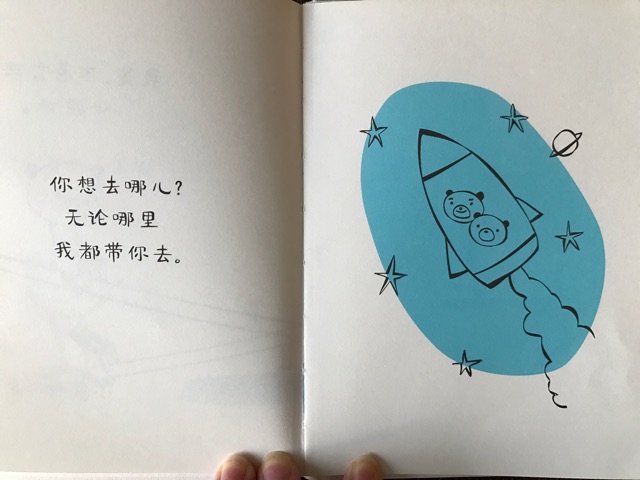 你想去哪儿?
无论哪里
我都带你去。